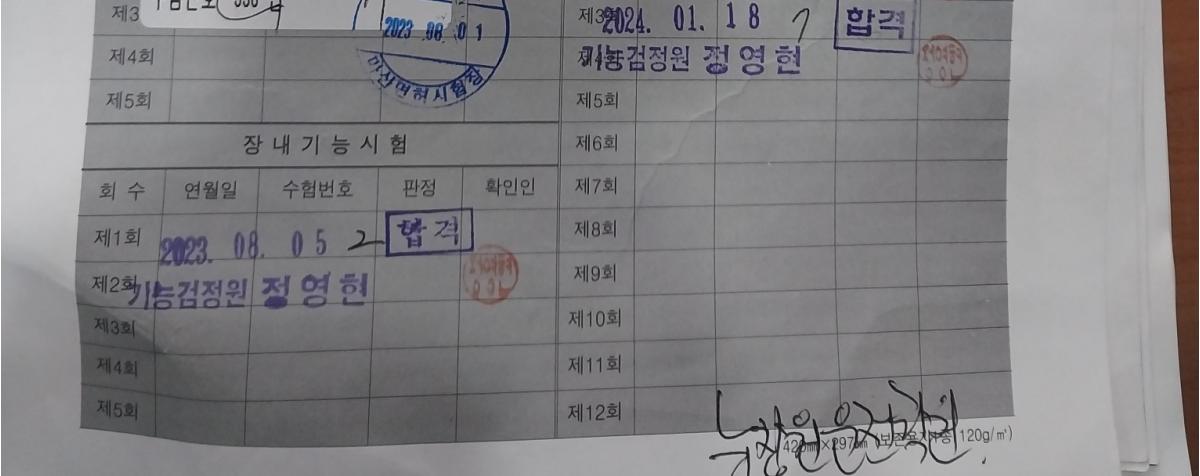 제3
2023 .08. 01
마산면허시험장
제4회
제5회
장내기능시험
회 수 연월일 수험번호 판정 확인인
제1회 2023. 08. 05 2 합격
제2회 기능검정원 정영현
제3회
제4회
제5회
제3 2024. 01. 18 7 합격
기능검정원 정영현
제5회
제6회
제7회
제8회
제9회
제10회
제11회
제12회
420㎜×297㎜ (보존용지 120g/㎡)